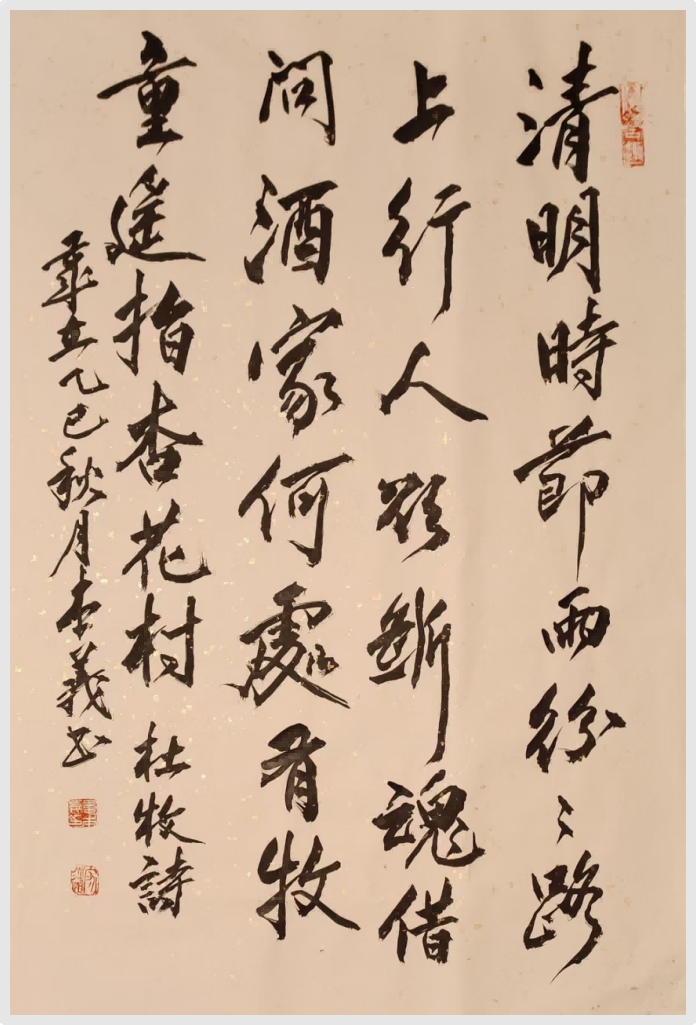 清明時節雨紛〻路
上行人欲斷魂借
問酒家何處有牧
童遥指杏花村 杜牧詩
乙巳秋月 義书